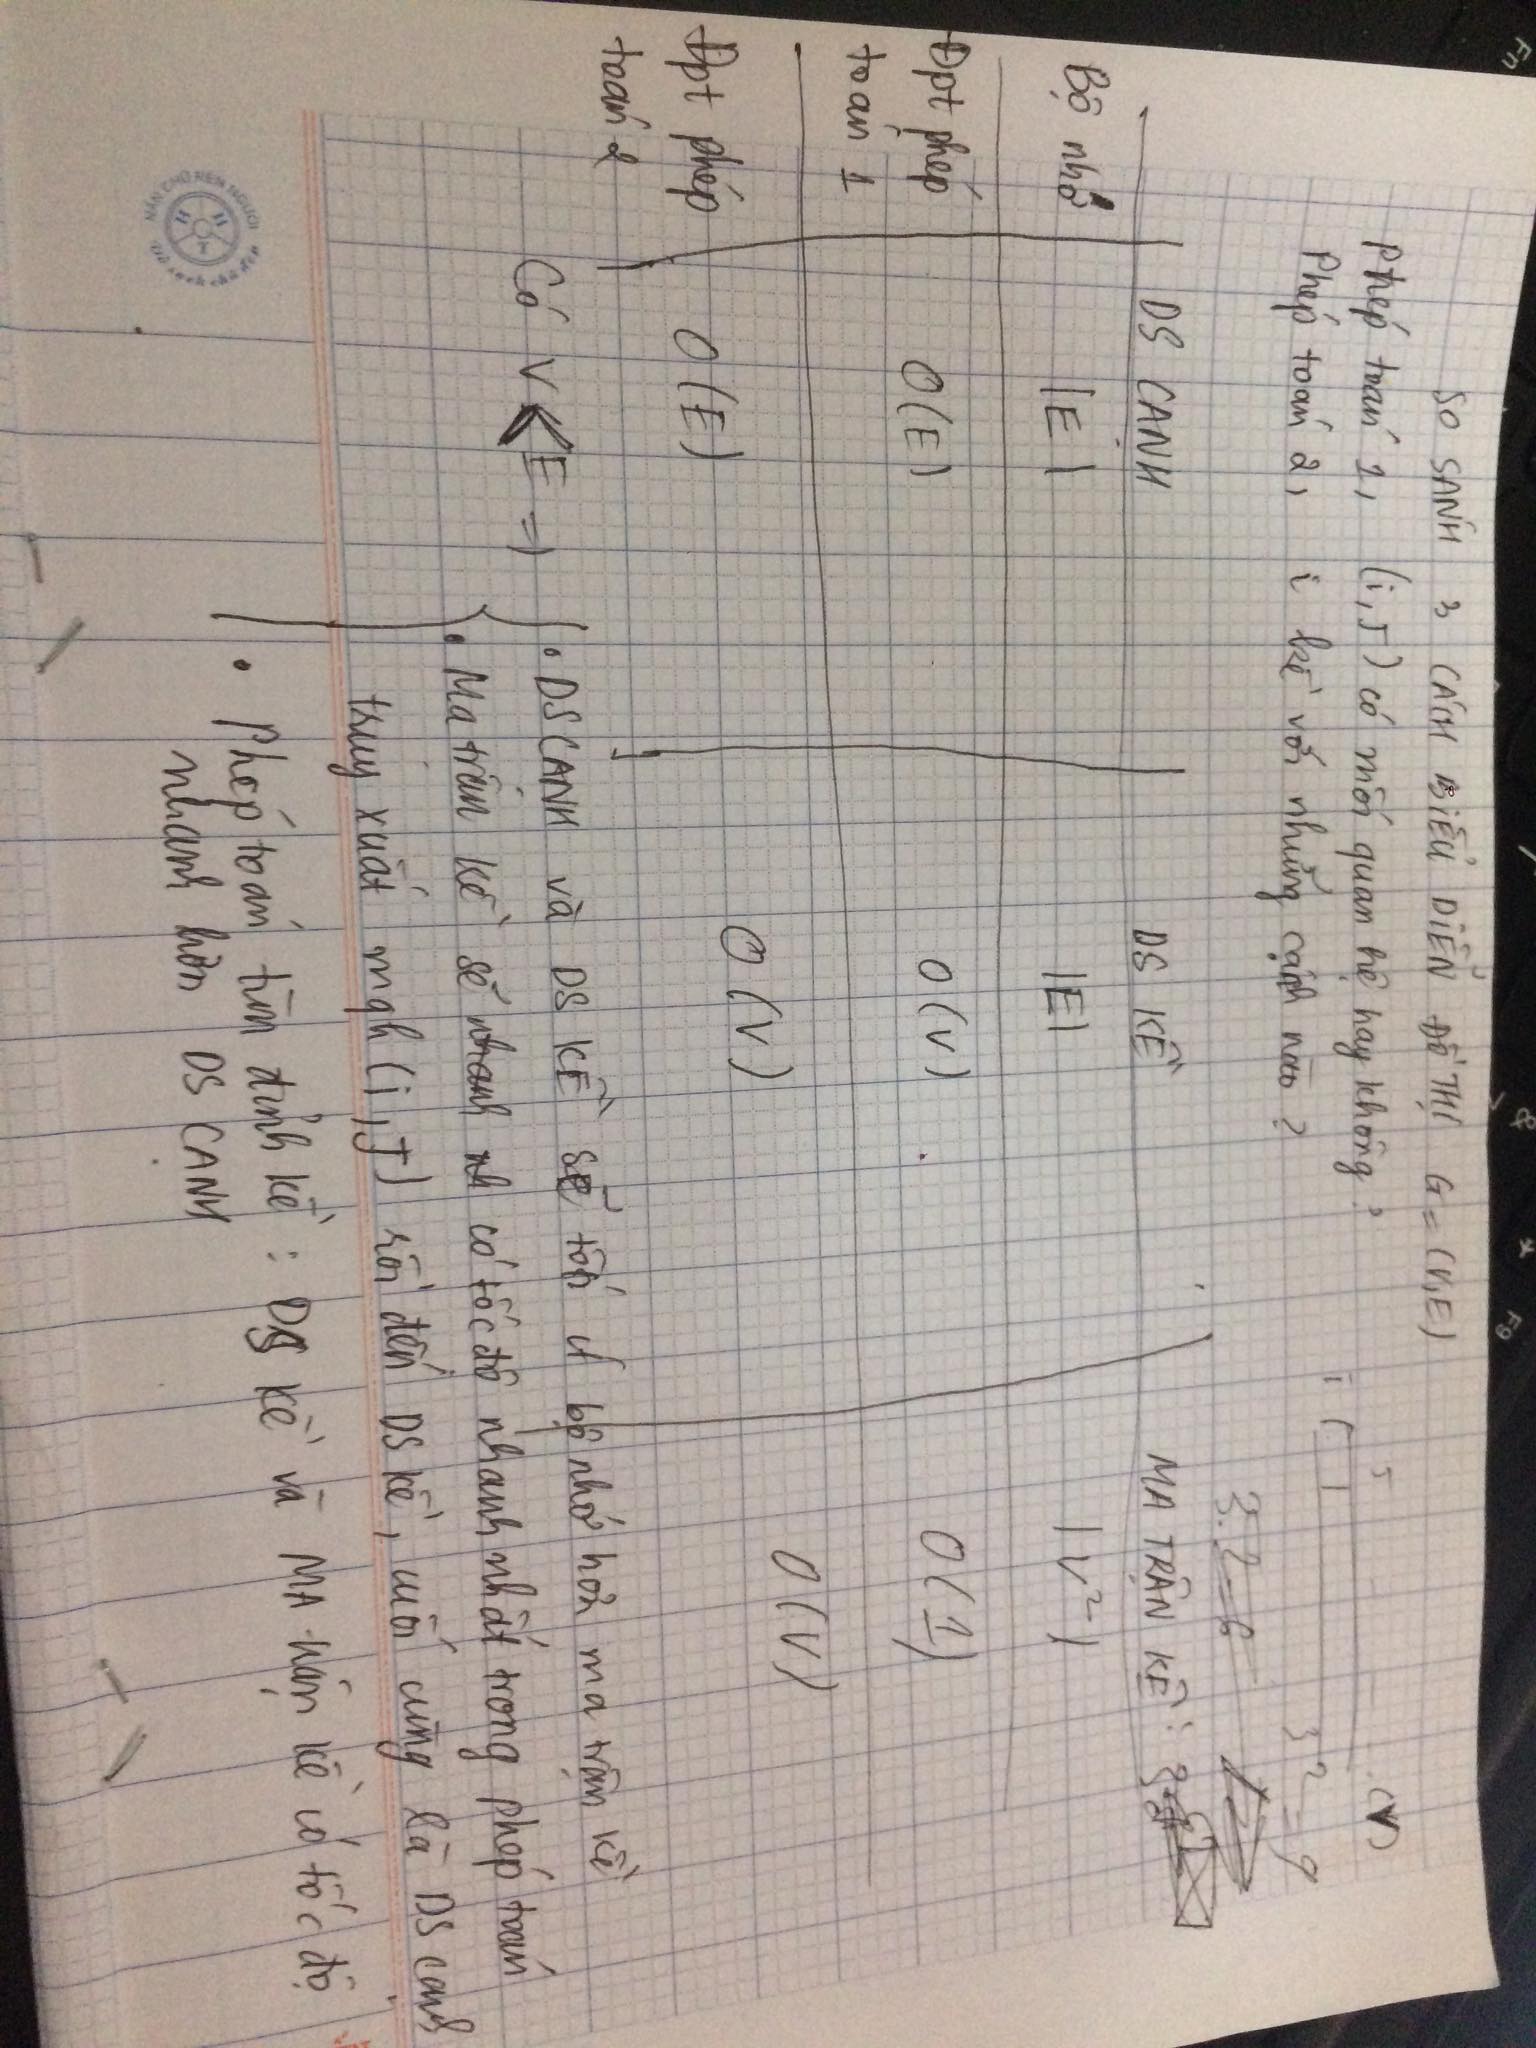 SO SÁNH 3 CÁCH BIỂU DIỄN ĐỒ THỊ G = (V,E)
Phép toán 1, (i,J) có mối quan hệ hay không?
Phép toán 2, i kề với những cạnh nào?
J
i ( 1
(V)
3.2=6
3²=9
DS CẠNH
DS KỀ
MA TRẬN KỀ:
Bộ nhớ
|E|
|E|
|V²|
Đpt phép
toán 1
O(E)
O(V)
O(1)
Đpt phép
toán 2
O(E)
O(V)
O(V)
Có V < E =>
• DS CẠNH và DS KỀ sẽ tốn ít bộ nhớ hơn ma trận kề
• Ma trận kề sẽ nhanh nh có tốc độ nhanh nhất trong phép toán
truy xuất mqh (i,J) rồi đến DS kề, cuối cùng là DS cạnh
• Phép toán tìm đỉnh kề: DS KỀ và MA trận kề có tốc độ
nhanh hơn DS CẠNH
NẮN CHỮ RÈN NGƯỜI
H H
T
Vở sạch chữ đẹp
Fn
&
*
F9